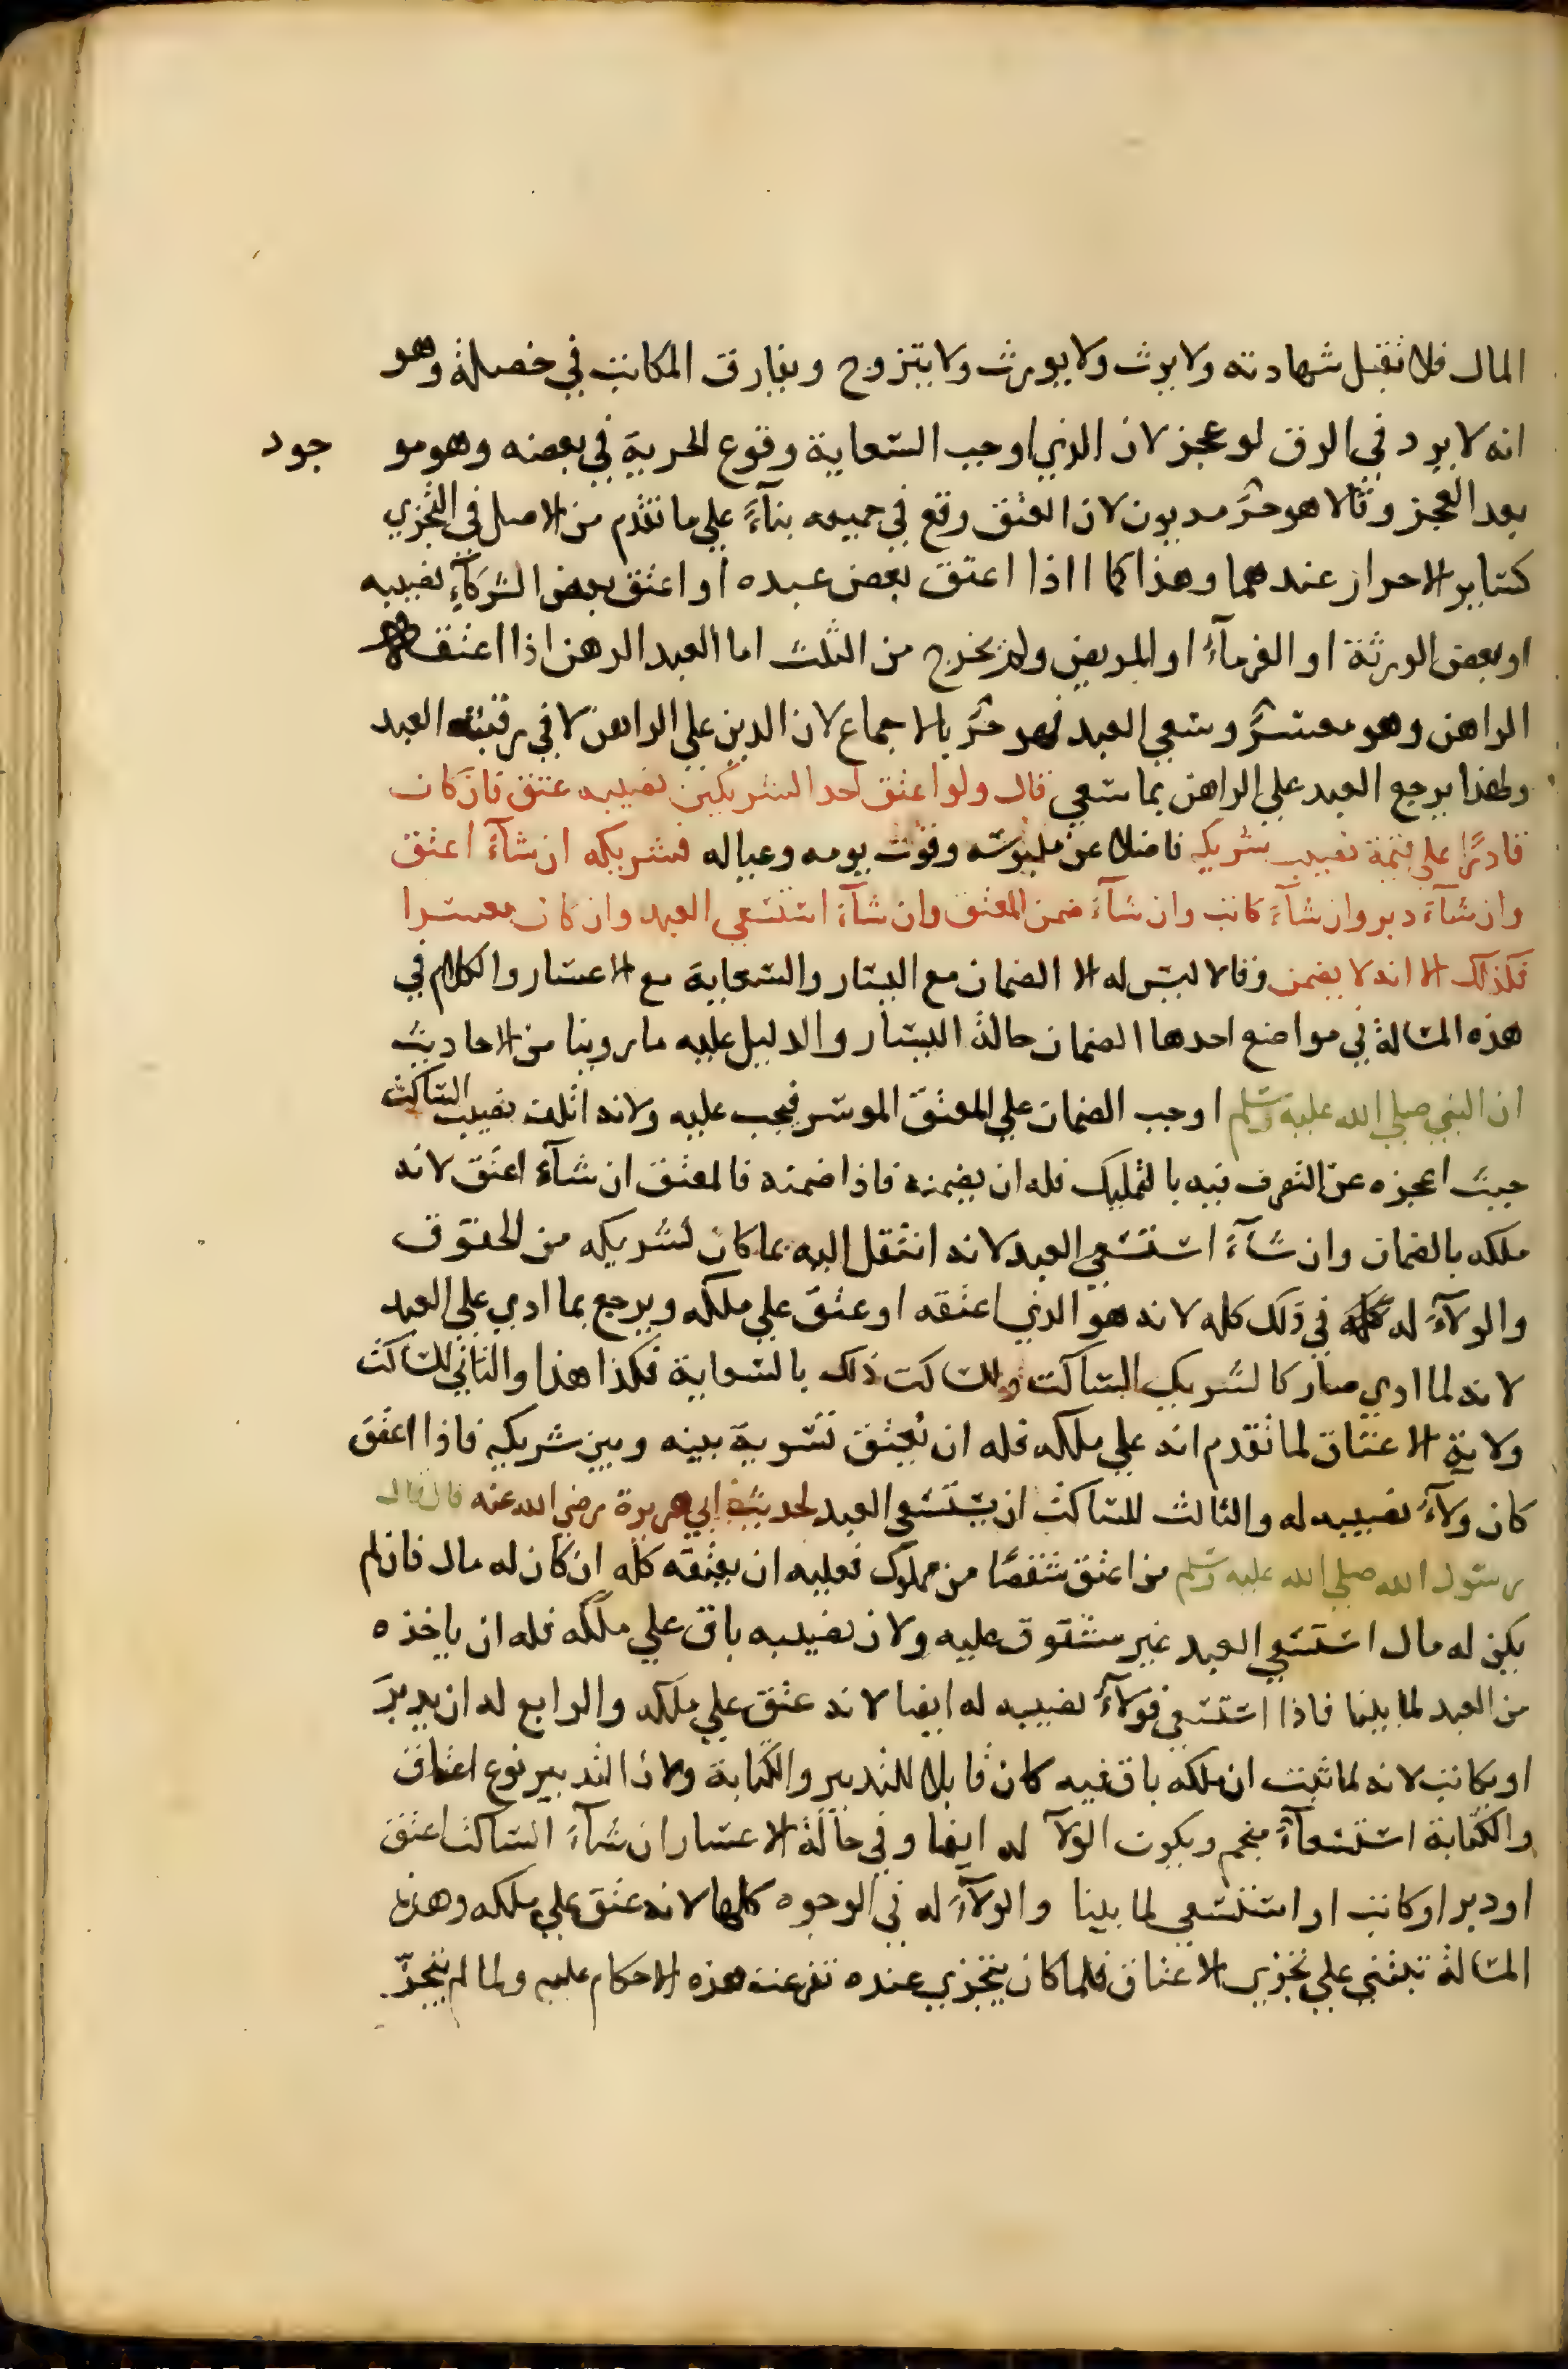 المال فلا تقبل شهادته ولا يرث ولا يورث ولا يتزوج ويفارق المكاتب في خصلة وهو
انه لا يرد في الرق لو عجز لان الذي اوجب السعاية وقوع الحرية في بعضه وهو مو جود
بعد العجز وقالا هو حر مديون لان العتق وقع في جميعه بناءً علي ما تقدم من الاصل في التجزي
كساير الاحرار عندهما وهذا كما اذا اعتق بعض عبده او اعتق بعض الشركاءِ نصيبه
او بعض الورثة او الغرماءُ او المريض ولم يخرج من الثلث اما العبد الرهن اذا اعتقه
الراهن وهو معسرٌ وسعي العبد فهو حرٌ بالاجماع لان الدين علي الراهن لا في رقبته العبد
ولهذا يرجع العبد علي الراهن بما سعي قال ولو اعتق احد الشريكين نصيبه عتق فان كان
قادرًا علي قيمة نصيب شريكه فاضلا عن ملبوسه وقوت يومه وعياله فشريكه ان شآءَ اعتق
وان شآءَ دبر وان شآءَ كاتب وان شآءَ ضمن المعتق وان شآءَ استسعي العبد وان كان معسرا
فكذلك الا انه لا يضمن وقالا ليس له الا الضمان مع اليسار والسعاية مع الاعسار والكلام في
هذه المسالة في مواضع احدها الضمان حالة اليسار والدليل عليه ما روينا من الاحاديث
ان النبي صلي الله عليه وسلم اوجب الضمان علي المعتق الموسر فيجب عليه ولانه اتلف نصيب الساكت
حيث اعجزه عن التصرف فيه بالتمليك فله ان يضمنه فاذا ضمنه فالمعتق ان شآءَ اعتق لانه
ملكه بالضمان وان شآءَ استسعي العبد لانه انتقل اليه بما كان لشريكه من الحقوق
والولآءُ له كله في ذلك كله لانه هو الذي اعتقه او عتق علي ملكه ويرجع بما ادي علي العبد
لانه لما ادي صار كالشريك الساكت وللساكت ذلك بالسعاية فكذا هذا والثاني للساكت
ولاية الاعتاق لما تقدم انه علي ملكه فله ان يُعتق تسوية بينه وبين شريكه فاذا اعتق
كان ولآءُ نصيبه له والثالث للساكت ان يستسعي العبد لحديث ابي هريرة رضي الله عنه قال قال
رسول الله صلي الله عليه وسلم من اعتق شقصًا من مملوك فعليه ان يعتقه كله ان كان له مال فان لم
يكن له مال استسعي العبد غير مشقوق عليه ولان نصيبه باق علي ملكه فله ان ياخذه
من العبد لما بينا فاذا استسعي فولآءُ نصيبه له ايضا لانه عتق علي ملكه والرابع له ان يدبرَ
او يكاتب لانه لما ثبت ان ملكه باق فيه كان قابلا للتدبير والكتابة ولان التدبير نوع اعتاق
والكتابة استسعآءٌ منجم ويكون الولآ له ايضا وفي حالة الاعسار ان شآءَ الساكت اعتق
او دبر او كاتب او استسعي لما بينا والولآءُ له في الوجوه كلها لانه عتق علي ملكه وهذه
المسالة تبتني علي تجزي الاعتاق فلما كان يتجزي عنده تفرعت هذه الاحكام عليه ولما لم يتجزّ